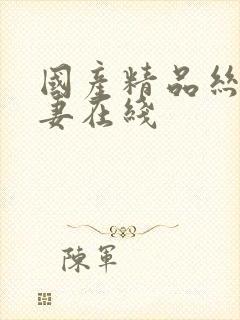 國產精品絲
妻在綫
陳軍